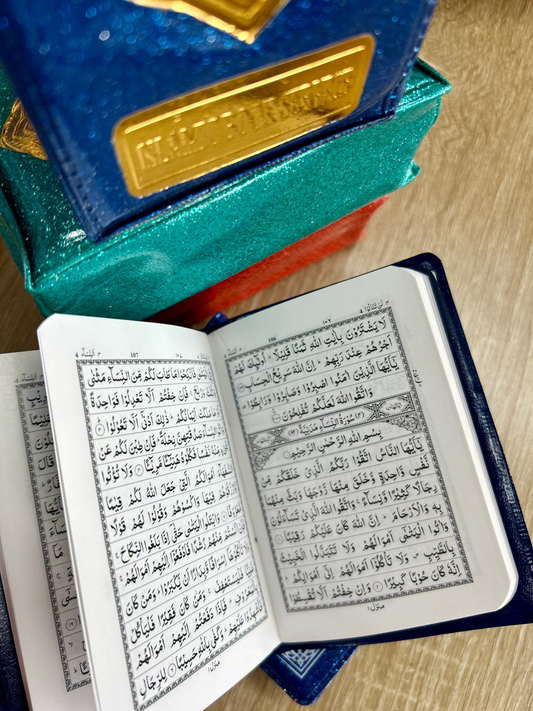 ١٠٦
106
لَا يَشْتَرُوْنَ بِاٰيٰتِ اللّٰهِ ثَمَنًا قَلِيْلًا ؕ اُولٰٓئِكَ لَهُمْ
اَجْرُهُمْ عِنْدَ رَبِّهِمْ ؕ اِنَّ اللّٰهَ سَرِيْعُ الْحِسَابِ
يٰٓاَيُّهَا الَّذِيْنَ اٰمَنُوا اصْبِرُوْا وَصَابِرُوْا وَرَابِطُوْا
وَاتَّقُوا اللّٰهَ لَعَلَّكُمْ تُفْلِحُوْنَ
سُوْرَةُ النِّسَآءِ مَدَنِيَّةٌ
بِسْمِ اللّٰهِ الرَّحْمٰنِ الرَّحِيْمِ
يٰٓاَيُّهَا النَّاسُ اتَّقُوْا رَبَّكُمُ الَّذِيْ خَلَقَكُمْ مِّنْ
نَّفْسٍ وَّاحِدَةٍ وَّخَلَقَ مِنْهَا زَوْجَهَا وَبَثَّ مِنْهُمَا
رِجَالًا كَثِيْرًا وَّنِسَآءً ۚ وَاتَّقُوا اللّٰهَ الَّذِيْ تَسَآءَلُوْنَ
بِهٖ وَالْاَرْحَامَ ؕ اِنَّ اللّٰهَ كَانَ عَلَيْكُمْ رَقِيْبًا ۱
وَاٰتُوا الْيَتٰمٰٓى اَمْوَالَهُمْ وَلَا تَتَبَدَّلُوا الْخَبِيْثَ
بِالطَّيِّبِ وَلَا تَاْكُلُوْٓا اَمْوَالَهُمْ اِلٰٓى اَمْوَالِكُمْ ؕ
اِنَّهٗ كَانَ حُوْبًا كَبِيْرًا ۲ وَاِنْ خِفْتُمْ اَلَّا تُقْسِطُوْا
منزل ۱
107
فِي الْيَتٰمٰى فَانْكِحُوْا مَا طَابَ لَكُمْ مِّنَ النِّسَآءِ مَثْنٰى
وَثُلٰثَ وَرُبٰعَ ۚ فَاِنْ خِفْتُمْ اَلَّا تَعْدِلُوْا فَوَاحِدَةً
اَوْ مَا مَلَكَتْ اَيْمَانُكُمْ ؕ ذٰلِكَ اَدْنٰٓى اَلَّا تَعُوْلُوْا ۳
وَاٰتُوا النِّسَآءَ صَدُقٰتِهِنَّ نِحْلَةً ؕ فَاِنْ طِبْنَ لَكُمْ عَنْ
شَيْءٍ مِّنْهُ نَفْسًا فَكُلُوْهُ هَنِيْٓئًا مَّرِيْٓئًا ۴ وَلَا تُؤْتُوا
السُّفَهَآءَ اَمْوَالَكُمُ الَّتِيْ جَعَلَ اللّٰهُ لَكُمْ قِيٰمًا
وَّارْزُقُوْهُمْ فِيْهَا وَاكْسُوْهُمْ وَقُوْلُوْا لَهُمْ قَوْلًا
مَّعْرُوْفًا ۵ وَابْتَلُوا الْيَتٰمٰى حَتّٰٓى اِذَا بَلَغُوا النِّكَاحَ ۚ
فَاِنْ اٰنَسْتُمْ مِّنْهُمْ رُشْدًا فَادْفَعُوْٓا اِلَيْهِمْ اَمْوَالَهُمْ ۚ
وَلَا تَاْكُلُوْهَآ اِسْرَافًا وَّبِدَارًا اَنْ يَّكْبَرُوْا ؕ وَمَنْ كَانَ
غَنِيًّا فَلْيَسْتَعْفِفْ ۚ وَمَنْ كَانَ فَقِيْرًا فَلْيَاْكُلْ
بِالْمَعْرُوْفِ ؕ فَاِذَا دَفَعْتُمْ اِلَيْهِمْ اَمْوَالَهُمْ
فَاَشْهِدُوْا عَلَيْهِمْ ؕ وَكَفٰى بِاللّٰهِ حَسِيْبًا ۶ لِلرِّجَالِ
منزل ۱